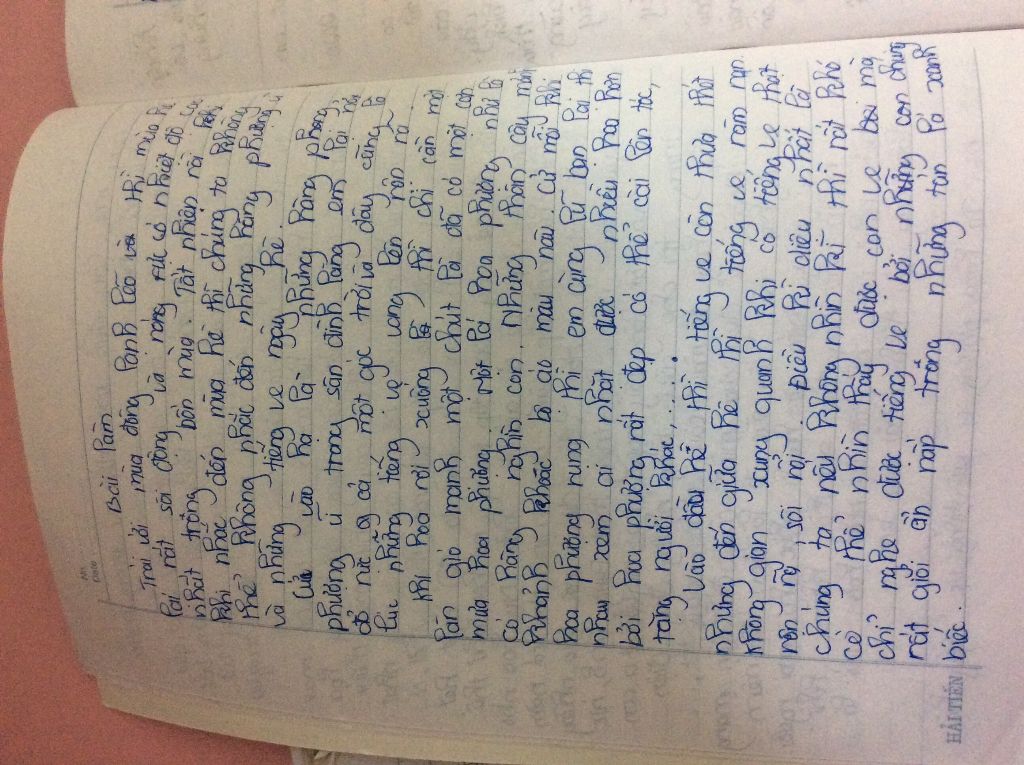 Bài làm
Trái với mùa đông lạnh lẽo thì mùa hè
lại rất sôi động và nóng nực có nhiệt độ cao
nhất trong bốn mùa. Tất nhiên nói
khi nhắc đến mùa hè thì chúng ta không
thể không nhắc đến những hàng phượng vĩ
và những tiếng ve ngày hè.
Cứ vào hạ là những hàng phong
phượng vĩ trong sân đình làng em lại nở
đỏ rực cả một góc trời và đây cũng là
lúc những tiếng ve vang lên rộn rã.
Khi hoa rơi xuống thì chỉ cần một
làn gió mạnh một chút là đã có một cơn
mưa hoa phượng. Một lá hoa phượng nhỏ bé
có hàng nghìn con. Những thân cây mảnh
khảnh khoác bộ áo màu nâu. Cứ mỗi khi
hoa phượng rụng thì em cùng lũ bạn lại thi
nhau xem ai nhặt được nhiều hoa hơn
bởi hoa phượng rất đẹp có thể cài lên tóc,
tặng người khác,......
Vào đầu hề thì tiếng ve còn thưa thớt
nhưng đến giữa hè thì tiếng ve râm ran
không gian xung quanh khi có tiếng ve thật
rộn rã, sôi nổi. Điều kì diệu nhất là
chúng ta nếu không nhìn kĩ thì rất khó
có thể nhìn thấy được con ve bởi mà
chỉ nghe được tiếng ve bởi những con chúng
rất giỏi ẩn nấp trong những tán lá xanh
biếc.
HẢI TIẾN